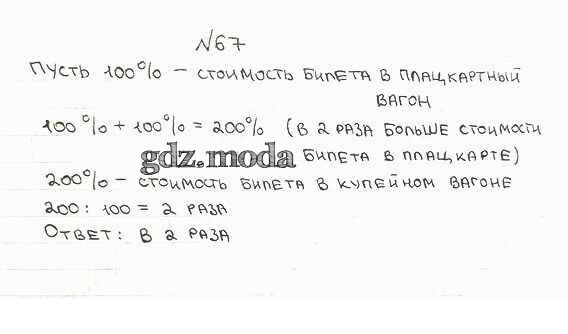 №67
Пусть 100% – стоимость билета в плацкартный
вагон
100% + 100% = 200% (в 2 раза больше стоимости
gdz.moda
билета в плацкарте)
200% – стоимость билета в купейном вагоне
200 : 100 = 2 раза
Ответ: в 2 раза